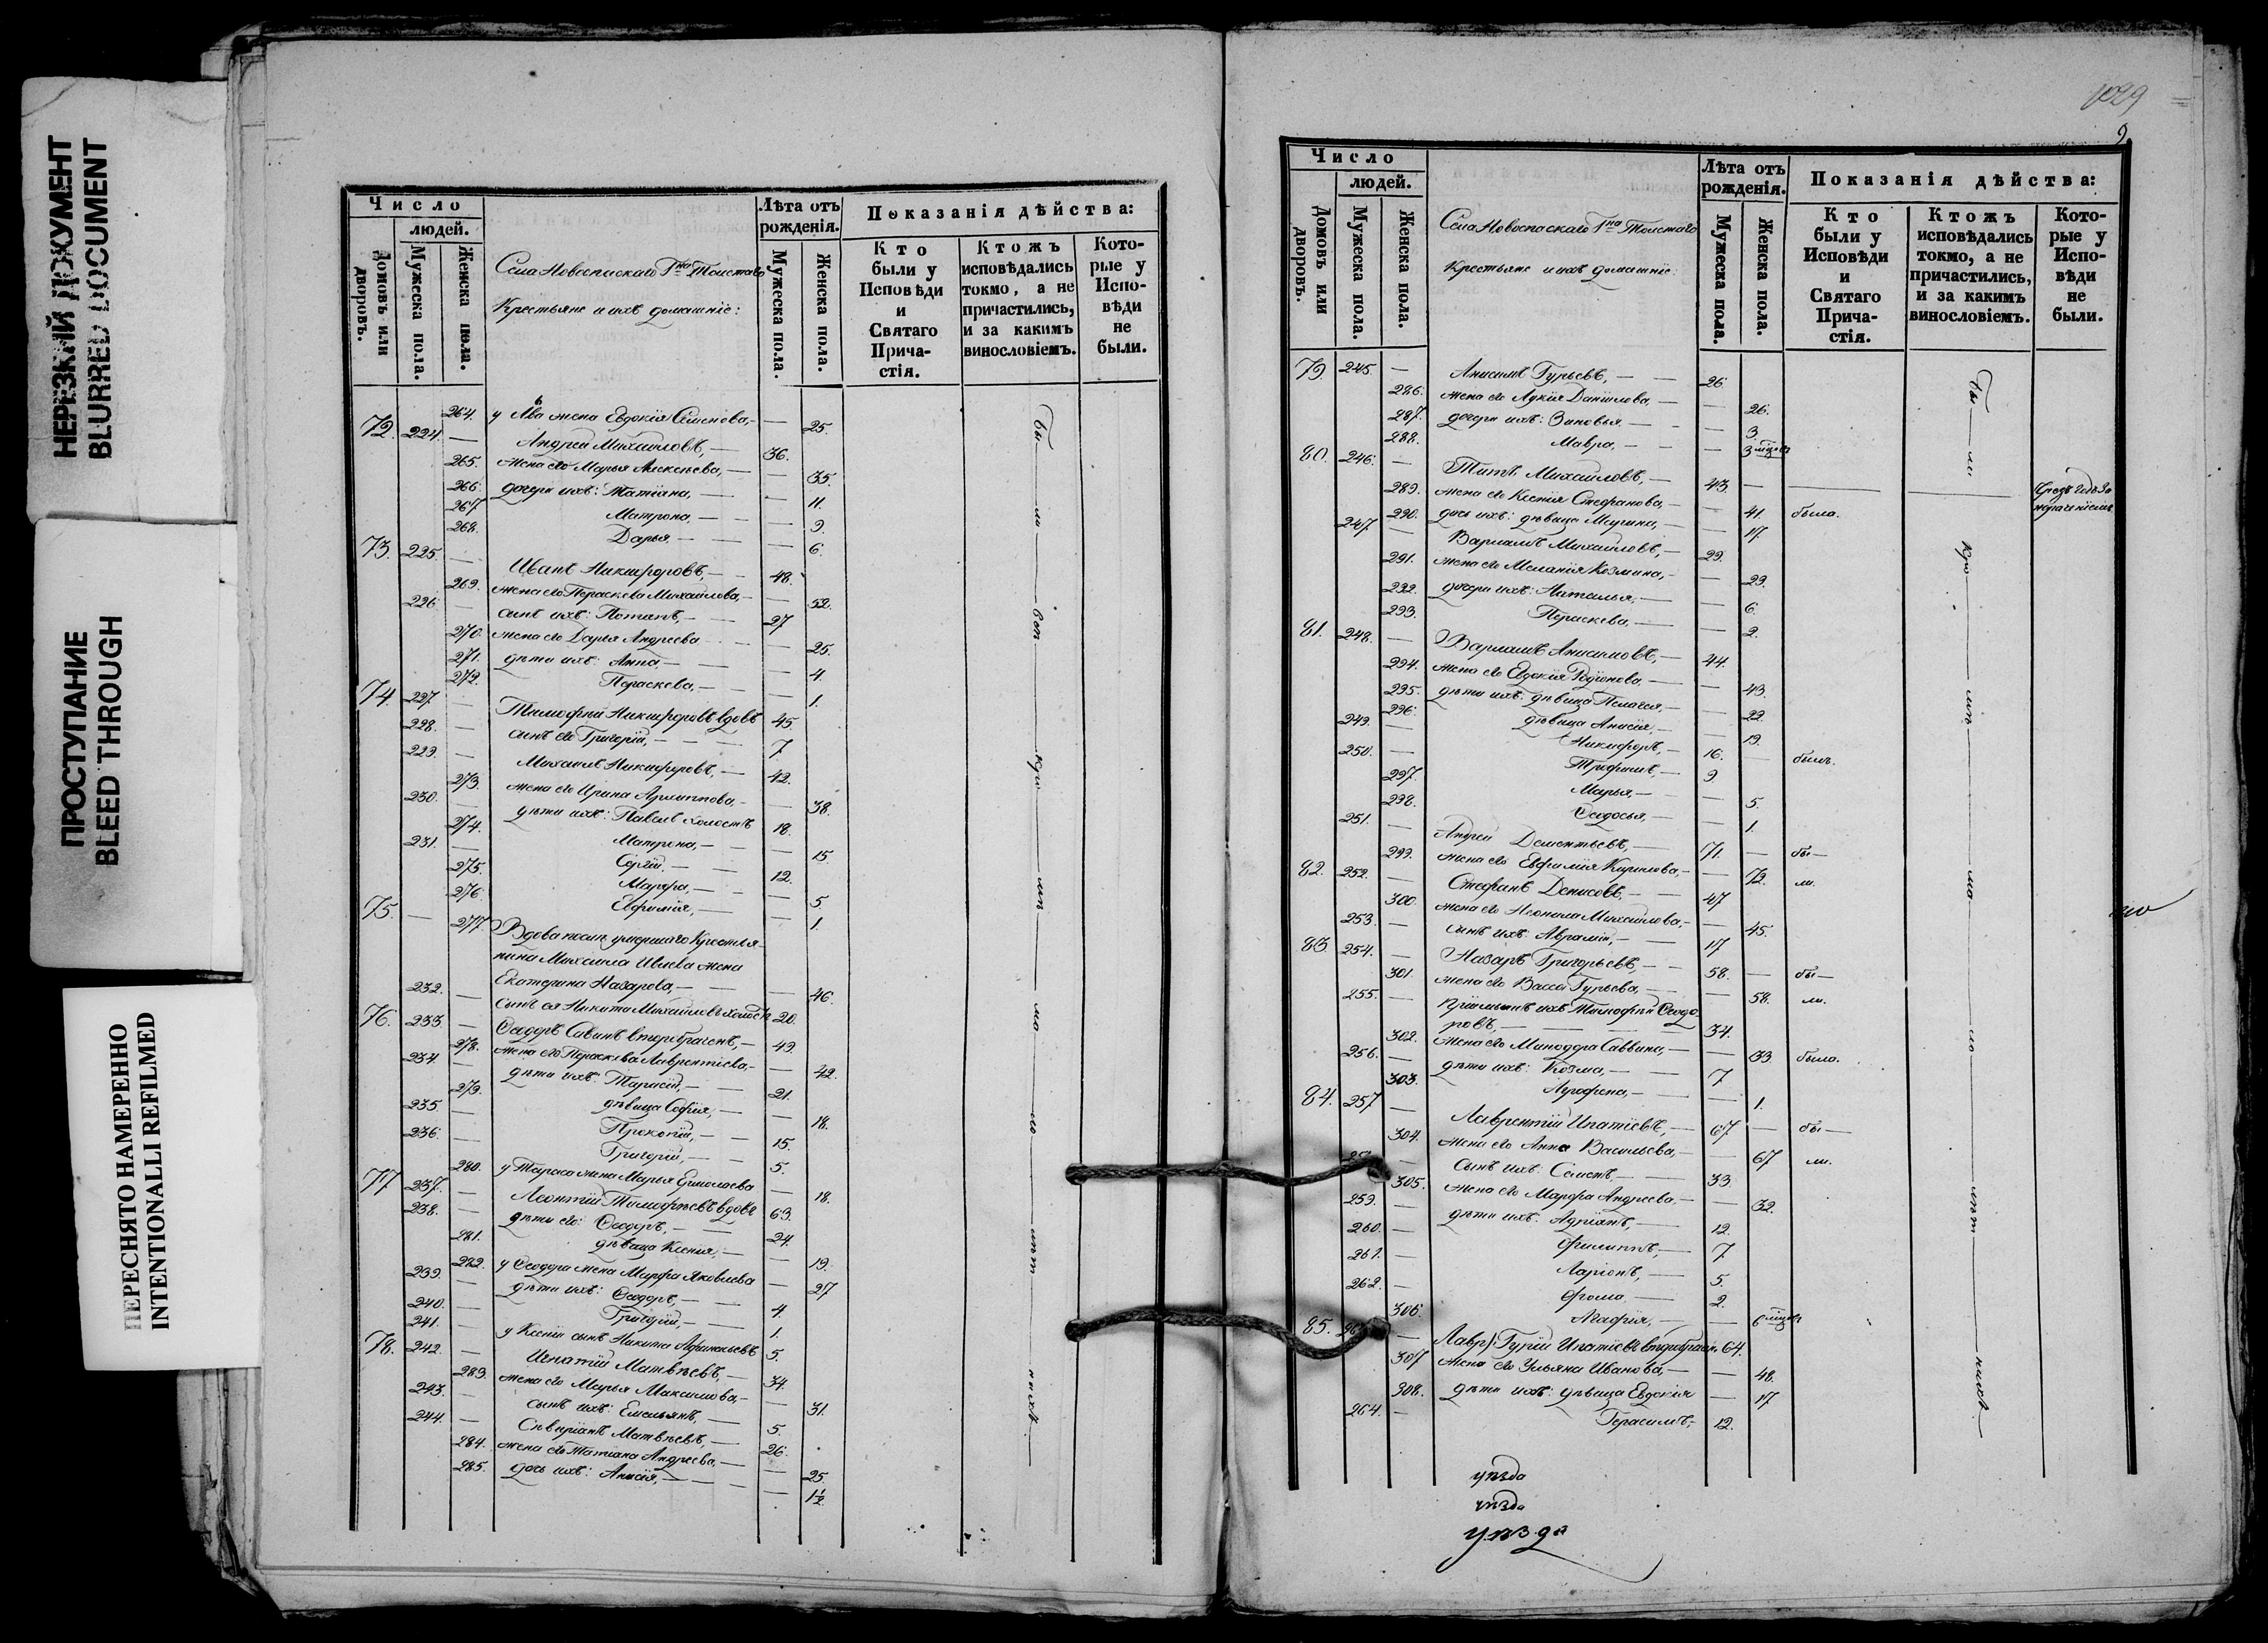 НЕРЕЗКИЙ ДОКУМЕНТ
BLURRED DOCUMENT
ПРОСТУПАНИЕ
BLEED THROUGH
ПЕРЕСНЯТО НАМЕРЕННО
INTENTIONALLI REFILMED
Число
людей.
Домовъ или дворовъ.
Мужеска пола.
Женска пола.
Села Новоспаскаго Гна Толстаго
Крестьяне и ихъ домашніе:
Лѣта отъ рожденія.
Мужеска пола.
Женска пола.
Показанія дѣйства:
Кто были у Исповѣди и Святаго Прича-стія.
Ктожъ исповѣдались токмо, а не причастились, и за какимъ винословіемъ.
Кото-рые у Испо-вѣди не были.
264. у Льва жена Евдокія Семенова, — — 25.
72. 224. — Андрей Михайловъ, — 36.
265. жена его Марья Алексѣева, — — 35.
266. дочери ихъ: Татіана, — — 11.
267. Матрона, — — 9.
268. Дарья — — 6.
73. 225. — Иванъ Никифоровъ, — 48.
269. жена его Параскева Михайлова, — 52.
226. — сынъ ихъ: Потапъ, — 27
270. жена его Дарья Андреева — 25.
271. дѣти ихъ: Анна, — — 4.
272. Параскева, — — 1.
74. 227. — Тимофей Никифоровъ вдовъ 45.
228. — сынъ его Григорій, — — 7.
229. — Михаилъ Никифоровъ, — 42.
273. жена его Ирина Архиппова, — — 38.
230. — дѣти ихъ: Павелъ холостъ 18.
274. Матрона, — — 15.
231. — Сергій, — 12.
275. Марфа, — — 5.
276. Евфимія, — — 1.
75. — 277 Вдова послѣ умершаго Крестья-
нина Михаила Ивлева жена
Екатерина Назарова, — — 46.
232. — Сынъ ея Никита Михайловъ холостъ 20.
76. 233. — Ѳеодоръ Савинъ второбраченъ, — 49.
278. жена его Параскева Лаврентіева, — — 42.
234. — дѣти ихъ: Тарасій, — 21.
279. дѣвица Софія, — — 18.
235. — Прокопій, — 15.
236. — Григорій, — 5.
280. у Тараса жена Марья Ермолаева — 18.
77 237. — Леонтій Тимофѣевъ вдовъ 63.
238. — дѣти его: Ѳеодоръ, — 24.
281. дѣвица Ксенія, — — 19.
282. у Ѳеодора жена Марфа Яковлева — 27
239. — дѣти ихъ: Ѳеодоръ, — 4.
240. — Григорій, — 1.
241. — у Ксеніи сынъ Никита Афанасьевъ 5.
78. 242. — Игнатій Матвѣевъ, — 34.
283. жена его Марья Максимова, — — 31.
243. — сынъ ихъ: Емельянъ, — 5.
244. — Севиріанъ Матвѣевъ, — 26.
284. жена его Татіана Андреева, — — 25.
285. дочь ихъ: Анисія, — — 1½.
1029
9
Число
людей.
Домовъ или дворовъ.
Мужеска пола.
Женска пола.
Села Новоспаскаго Гна Толстаго
Крестьяне и ихъ домашніе:
Лѣта отъ рожденія.
Мужеска пола.
Женска пола.
Показанія дѣйства:
Кто были у Исповѣди и Святаго Прича-стія.
Ктожъ исповѣдались токмо, а не причастились, и за какимъ винословіемъ.
Кото-рые у Испо-вѣди не были.
79. 245. — Анисимъ Гурьевъ, — — 26.
286. жена его Лукія Данилова, — — 26.
287. дочери ихъ: Зиновья — — 3.
288. Мавра, — — 3 мцовъ
80. 246. — Титъ Михайловъ, — 43. —
289. жена его Ксенія Стефанова, — — 41. была.
290. дочь ихъ: дѣвица Марина, — — 17.
247 — Варлаамъ Михайловъ, — 29.
291. жена его Меланія Козмина, — — 29.
292. дочери ихъ: Наталья, — — 6.
293. Параскева, — — 2.
81. 248. — Варлаамъ Анисимовъ, — 44.
294. жена его Евдокія Родіонова — — 43.
295. дѣти ихъ: дѣвица Пелагея, — — 22.
296. дѣвица Анисія, — — 19.
249. — Никифоръ, — 16. — былъ.
250. — Трофимъ, — 9
297. Марья, — — 5.
298. Ѳеодосья, — — 1.
251. — Андрей Дементьевъ, — 71. — бы—
299. жена его Евфимія Кирилова, — — 72. ли.
82. 252. — Стефанъ Денисовъ, — 47
300. жена его Неонила Михайлова, — — 45.
253. — сынъ ихъ: Аврамій, — 17
83 254. — Назаръ Григорьевъ, — 58. — бы—
301. жена его Васса Гурьева, — — 58. ли.
255. — пріимышъ ихъ Тимофей Ѳеодо-
ровъ, — 34.
302. жена его Минодора Саввина, — — 33. была.
256. — дѣти ихъ: Козма, — 7
303. Агрофена, — — 1.
84. 257 — Лаврентій Ипатіевъ, — 67 — бы—
304. жена его Анна Васильева, — — 67 ли.
— сынъ ихъ: Семенъ, — 33.
305. жена его Марфа Андреева — — 32.
259. — дѣти ихъ: Адріанъ, — 12.
260. — Филиппъ, — 7
261. — Ларіонъ, — 5.
262. — Фома — 2.
306. Агафія, — — 6 мцовъ
85. — Гурій Ипатіевъ второбрачн. 64.
307 жена его Ульяна Иванова, — — 48.
308. дѣти ихъ: дѣвица Евдокія — 17
264. — Герасимъ, — 12.
уѣзда
уѣзда
уѣзда